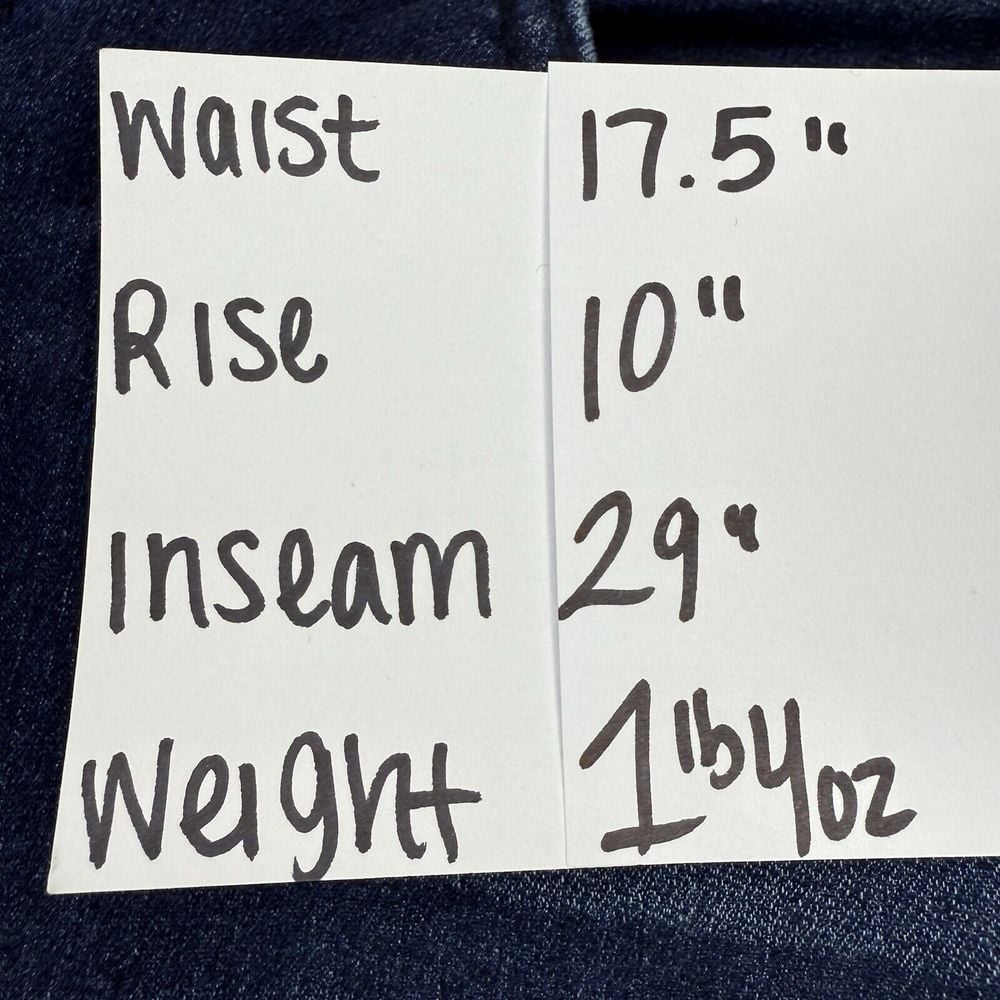 Waist 17.5"
Rise 10"
Inseam 29"
Weight 1 lb 4 oz